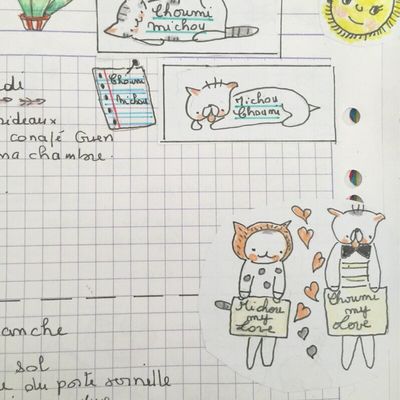 Choumi
michou
Choumi
michou
Michou
Choumi
di
rideaux
conafé Guen
ma chambre.
Michou
my
Love
Choumi
my
Love
anche
sol
du porte sornille